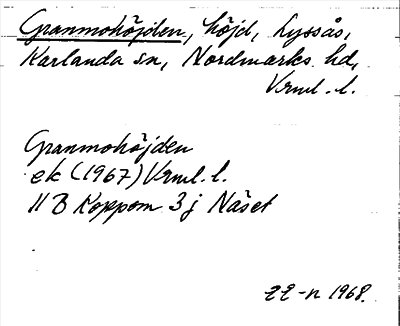 Granmohöjden, höjd, Lyssås,
Karlanda sn, Nordmarks hd,
Vrml. l.
Granmohöjden
ek (1967) Vrml. l.
11 B Koppom 3 j Näset
22-n 1968.